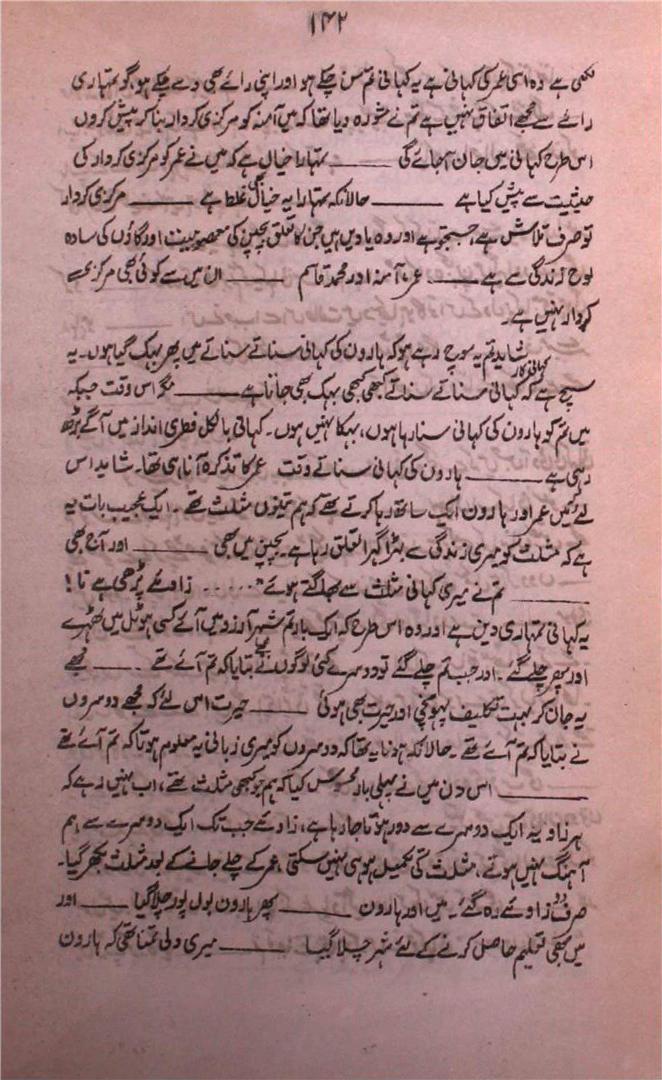 ۱۴۲
لکھی ہے وہ اسی عمر کی کہانی ہے یہ کہانی تم سن چکے ہو اور اپنی رائے بھی دے چکے ہو، گو تمہاری
رائے سے مجھے اتفاق نہیں ہے تم نے مشورہ دیا تھا کہ میں آمنہ کو مرکزی کردار بنا کر پیش کروں
اس طرح کہانی میں جان آجائے گی ـــــــ تمہارا خیال ہے کہ میں نے عمر کو مرکزی کردار کی
حیثیت سے پیش کیا ہے ـــــــ حالانکہ تمہارا یہ خیال غلط ہے ـــــــ مرکزی کردار
تو صرف تلاش ہے، جستجو ہے اور وہ یادیں ہیں جن کا تعلق بچپن کی معصومیت اور گاؤں کی سادہ
لوح زندگی سے ہے ـــــــ عمر، آمنہ اور محمد قاسم ـــــــ ان میں سے کوئی بھی مرکزی
کردار نہیں ہے۔
شاید تم یہ سوچ رہے ہو کہ ہارون کی کہانی سناتے سناتے میں پھر بہک گیا ہوں۔ یہ
سچ ہے کہ کہانی سناتے سناتے کہانی کار کبھی کبھی بہک بھی جاتا ہے ـــــــ مگر اس وقت جبکہ
میں تم کو ہارون کی کہانی سنا رہا ہوں، بہکا نہیں ہوں۔ کہانی بالکل فطری انداز میں آگے بڑھ
رہی ہے ـــــــ ہارون کی کہانی سناتے وقت عمر کا تذکرہ آنا ہی تھا۔ شاید اس
لئے کہ میں عمر اور ہارون ایک ساتھ رہا کرتے تھے کہ ہم تینوں مثلث تھے۔ ایک عجیب بات یہ
ہے کہ مثلث کو میری زندگی سے بڑا گہرا تعلق رہا ہے۔ بچپن میں بھی ـــــــ اور آج بھی
ـــــــ تم نے میری کہانی مثلث سے بھاگتے ہوئے " . . . . . . زاوئے پڑھی ہے نا!
یہ کہانی تمہاری دین ہے اور وہ اس طرح کہ ایک بار تم شہر آرزو میں آئے کسی ہوٹل میں ٹھہرے
اور پھر چلے گئے۔ اور جب تم چلے گئے تو دوسرے کئی لوگوں نے مجھے بتایا کہ تم آئے تھے ـــــــ مجھے
یہ جان کر بہت تکلیف پہونچی اور حیرت بھی ہوئی ـــــــ حیرت اس لئے کہ مجھے دوسروں
نے بتایا کہ تم آئے تھے۔ حالانکہ ہونا یہ تھا کہ دوسروں کو میری زبانی یہ معلوم ہوتا کہ تم آئے تھے
ـــــــ اس دن میں نے پہلی بار محسوس کیا کہ ہم جو کبھی مثلث تھے، اب نہیں رہے کہ
ہر زاویہ ایک دوسرے سے دور ہوتا جا رہا ہے، زاوئے جب تک ایک دوسرے سے ہم
آہنگ نہیں ہوتے، مثلث کی تکمیل ہو ہی نہیں سکتی، عمر کے چلے جانے کے بعد مثلث بکھر گیا۔
صرف دو زاوئے رہ گئے۔ میں اور ہارون ـــــــ پھر ہارون بول پور چلا گیا ـــــــ اور
میں بھی تعلیم حاصل کرنے کے لئے شہر چلا گیا ـــــــ میری دلی تمنا تھی کہ ہارون